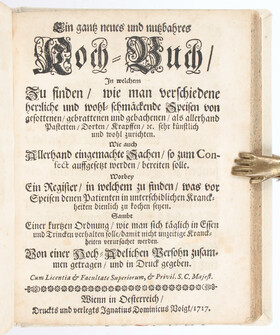 Ein gantz neues und nutzbahres
Koch-Buch/
In welchem
Zu finden/ wie man verschiedene
herrliche und wohl-schmäckende Speisen von
gesottenen/ gebrattenen und gebachenen/ als allerhand
Pastetten/ Dorten/ Krapffen/ ꝛc. sehr künstlich
und wohl zurichten.
Wie auch
Allerhand eingemachte Sachen/ so zum Con-
fect auffgesetzt werden/ bereiten solle.
Worbey
Ein Register/ in welchem zu finden/ was vor
Speisen denen Patienten in unterschidlichen Kranck-
heiten dienlich zu kochen seyen.
Sambt
Einer kurtzen Ordnung/ wie man sich täglich in Essen
und Trincken verhalten solle/ damit nicht unzeitige Kranck-
heiten verursachet werden.
Von einer Hoch-Adelichen Persohn zusam-
men getragen/ und in Druck gegeben.
Cum Licentia & Facultate Superiorum, & Privil. S. C. Majest.
Wienn in Oesterreich/
Druckts und verlegts Ignatius Dominicus Voigt/ 1717.